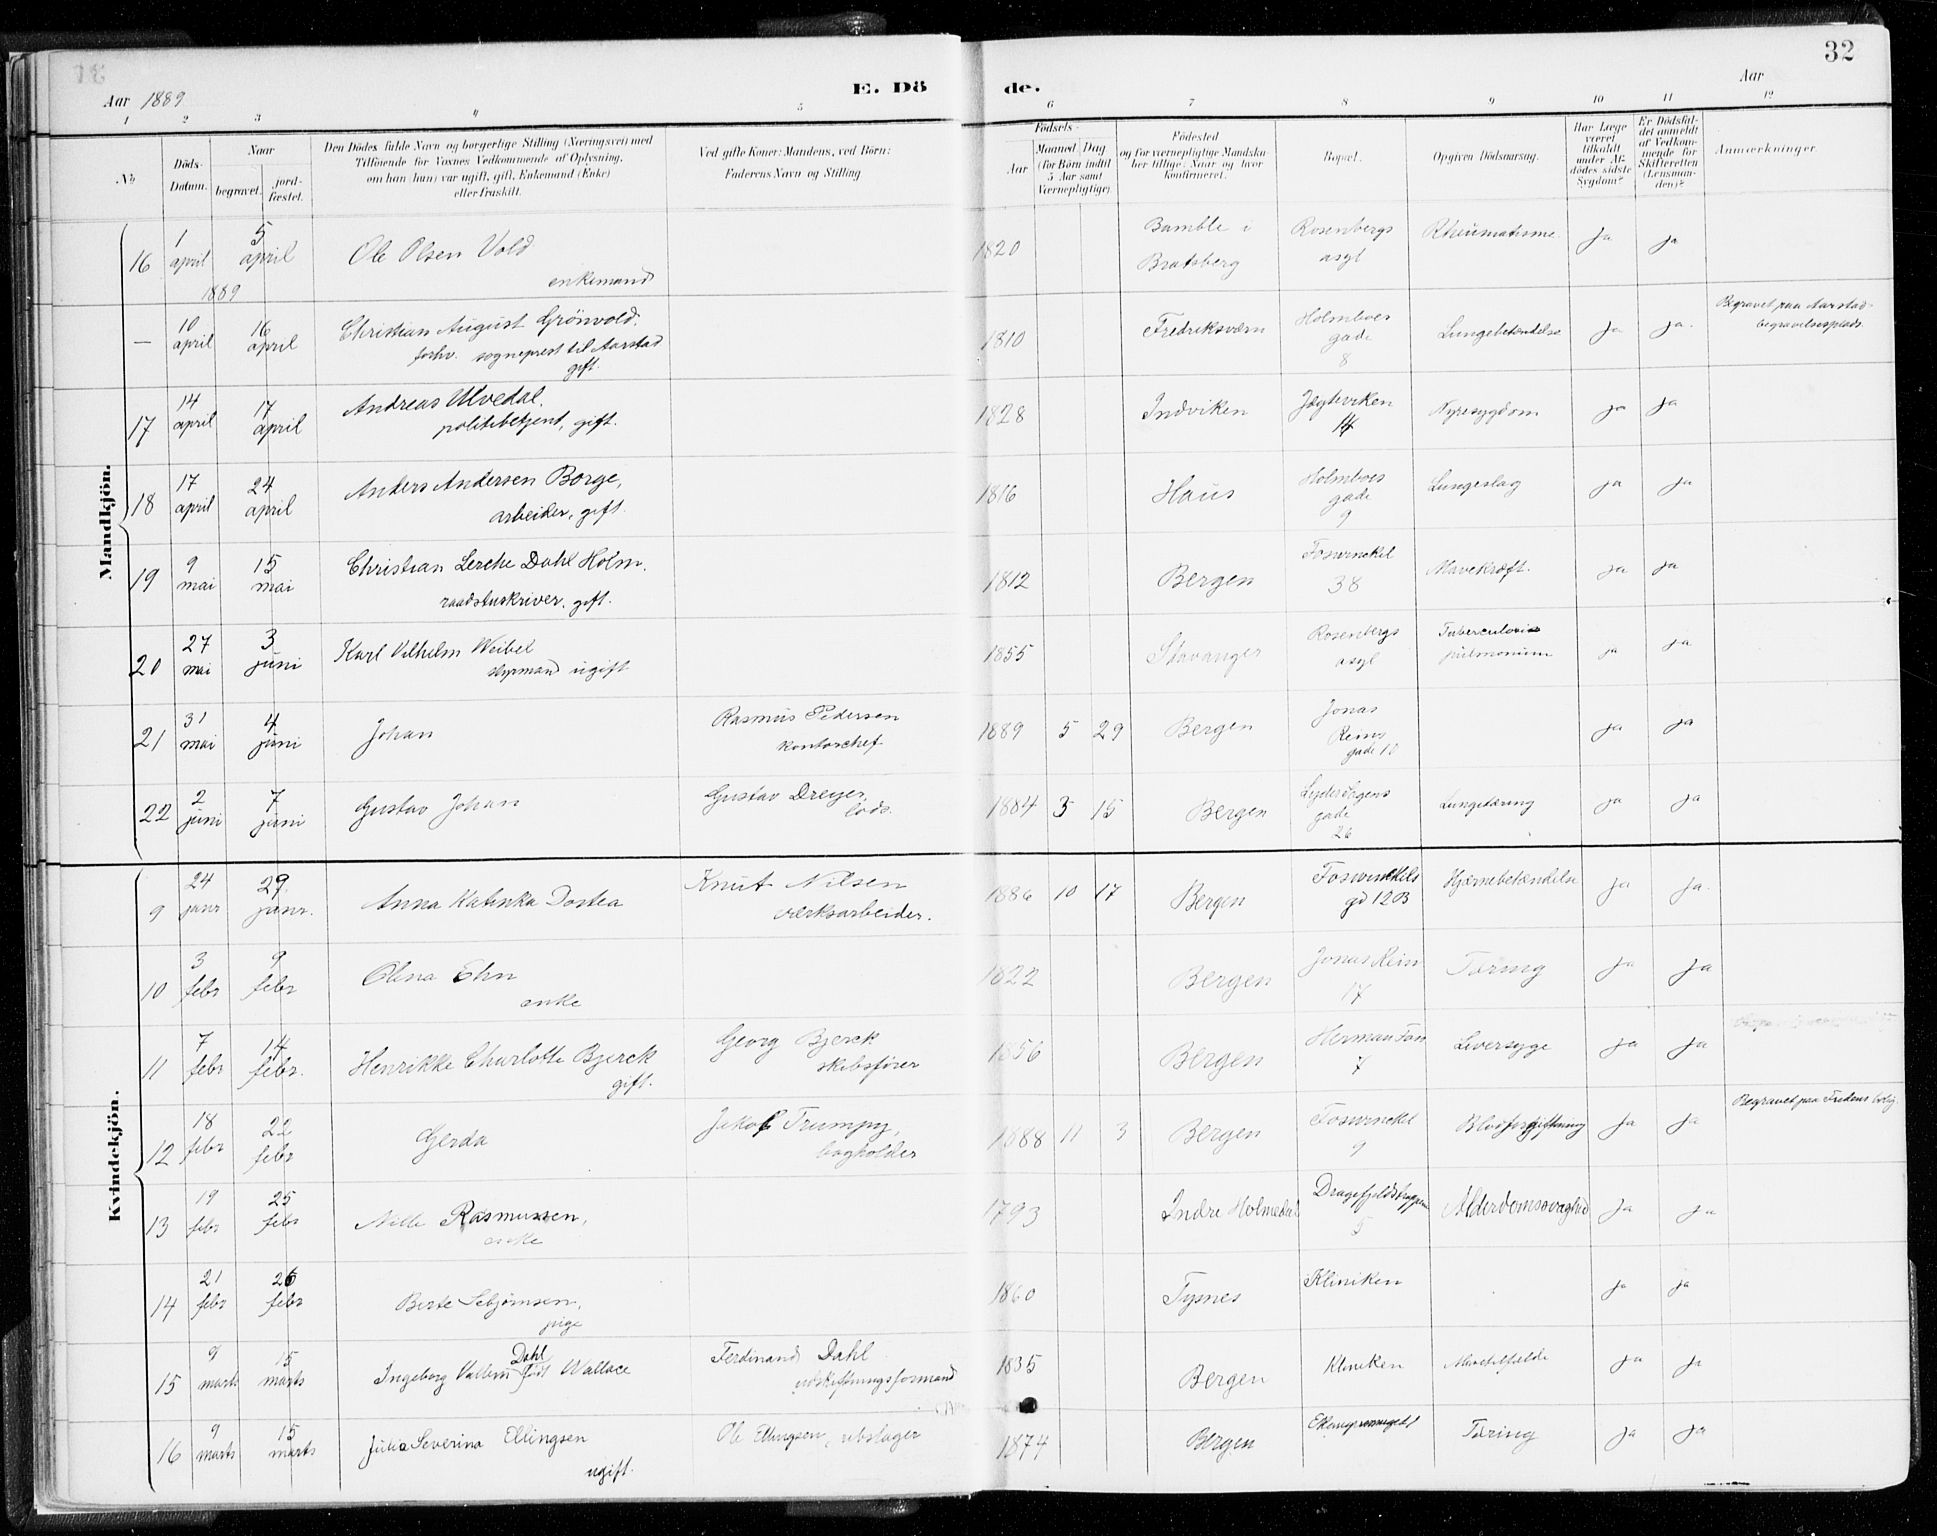 32
Aar 1889
E. Dö
de.
Aar
1 2 3 4 5 6 7 8 9 10 11 12
№
Döds-
Datum.
Naar
begravet.
jord-
fæstet.
Den Dödes fulde Navn og borgerlige Stilling (Næringsvei) med
Tilföiende for Voxnes Vedkommende af Oplysning,
om han (hun) var ugift, gift, Enkemand (Enke)
eller fraskilt.
Ved gifte Koner: Mandens, ved Börn:
Faderens Navn og Stilling
Födsels-
Aar
Maaned Dag
(for Börn indtil
5 Aar samt
Værnepligtige).
Födested
og for værnepligtige Mandskaber
tillige: Naar og hvor
konfirmeret.
Bopæl.
Opgiven Dödsaarsag.
Har Læge
været
tilkaldt
under Afdödes
sidste
Sygdom?
Er Dödsfaldet
anmeldt
af Vedkommende
for
Skifteretten
(Lensmanden)?
Anmærkninger.
Mandkjön.
16 1 april 1889 5 april Ole Olsen Vold enkemand 1820 Bamble i Bratsberg Rosenbergs asyl Rheumatisme ja ja
— 10 april 16 april Christian August Grönvold, forhv. sogneprest til Aarstad gift. 1810 Fredriksværn Holmboes gade 8 Lungebetændelse ja ja. Begravet paa Aarstad begravelsesplads.
17 14 april 17 april Andreas Ulvedal, politibetjent, gift. 1828 Indviken Jægteviken 14 Nyresygdom ja ja
18 17 april 24 april Anders Andersen Borge, arbeider, gift 1816 Haus Holmboes gade 9 Lungeslag ja ja
19 9 mai 15 mai Christian Lerche Dahl Holm, raadstuskriver, gift. 1812 Bergen Foswinckel 38 Mavekræft. ja ja
20 27 mai 3 juni Karl Vilhelm Weibel styrmand ugift 1855 Stavanger Rosenbergs asyl Tuberculosis pulmonum ja ja
21 31 mai 4 juni Johan Rasmus Pedersen kontorchef 1889 5 29 Bergen Jonas Reins gade 10 ja ja
22 2 juni 7 juni Gustav Johan Gustav Dreyer, lods. 1884 3 15 Bergen Lyder Sagens gade 26 Lungetæring ja ja
Kvindekjön.
9 24 janr 29 janr. Anna Katinka Dortea Knut Nilsen værksarbeider. 1886 10 17 Bergen Foswinckels gd 12B Hjernebetændelse ja ja.
10 3 febr 9 febr Olena Ehn enke 1822 Bergen Jonas Rein 17 Tæring ja ja
11 7 febr 14 febr. Henrikke Charlotte Bjerck gift. Georg Bjerck skibsfører 1856 Bergen Herman Foss 7 Leversyge ja ja
12 18 febr 22 febr Gerda Jakob Trumpy, bogholder 1888 11 3 Bergen Foswinckel 9 Blodforgiftning ja ja Begravet paa Fredens bolig
13 19 febr 25 febr Nille Rasmussen, enke 1793 Indre Holmedal Dragefjeldstrappen 5 Alderdomssvaghed ja ja
14 21 febr 26 febr Berte Sebjörnsen, pige 1860 Tysnes Kliniken ja ja
15 9 marts 15 marts Ingeborg Dahl född Wallace Ferdinand Dahl udskiftningsformand 1835 Bergen Kliniken ja ja
16 9 marts 15 marts Julia Severina Ellingsen ugift. Ole Ellingsen, 1874 Bergen Tæring ja ja